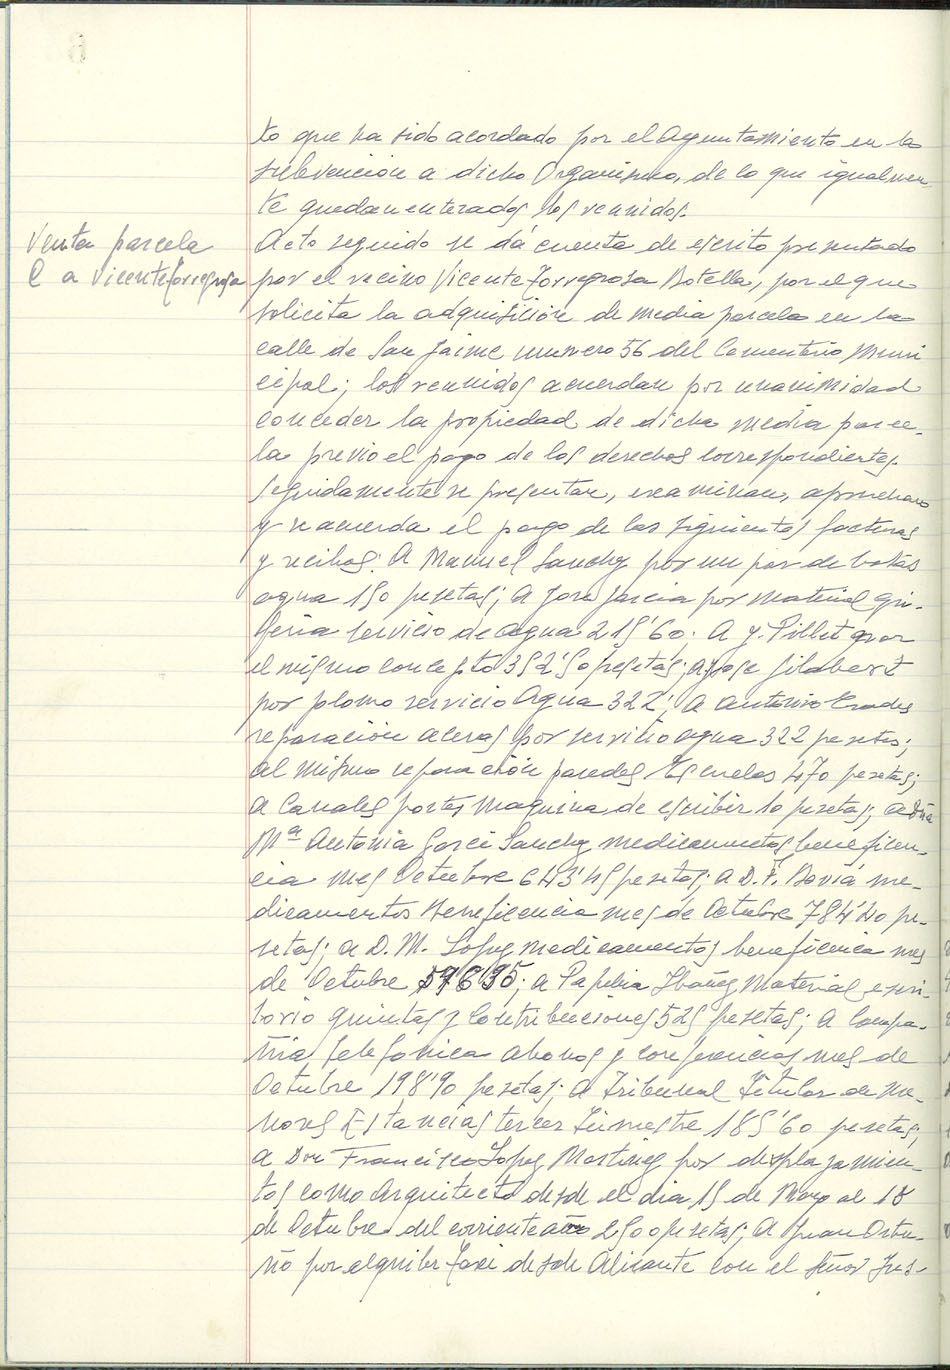 to que ha sido acordado por el Ayuntamiento en la
subvención a dicho Organismo, de lo que igualmen-
te quedan enterados los reunidos.
Venta parcela
C a Vicente Torregrosa
Acto seguido se dá cuenta de escrito presentado
por el vecino Vicente Torregrosa Botella, por el que
solicita la adquisición de media parcela en la
calle de San Jaime numero 56 del Cementerio Muni
cipal; los reunidos acuerdan por unanimidad
conceder la propiedad de dicha media parce-
la previo el pago de los derechos correspondientes.
Seguidamente se presentan, examinan, aprueban
y se acuerda el pago de las siguientes facturas
y recibos: A Manuel Sanchez por un par de botas
agua 150 pesetas; A Jose Garcia por material gri-
feria servicio de agua 215'60. A J. Pillet por
el mismo concepto 352'50 pesetas; a Jose Gilabert
por plomo servicio Agua 322'; a Antonio
reparación aceras por servicio agua 322 pesetas;
al mismo reparación paredes Escuelas 470 pesetas;
a Canales portes maquina de escribir 10 pesetas; a Dña
Mª Antonia Sanchez medicamentos beneficen-
cia mes Octubre 643'45 pesetas; a D. F. Boviá me-
dicamentos Beneficencia mes de Octubre 784'40 pe-
setas; a D. M. Lopez medicamentos beneficencia mes
de Octubre; a Ibañez Material escri-
torio quintas y Contribuciones 525 pesetas; A Compa-
ñia Telefonica abonos y conferencias mes de
Octubre 198'90 pesetas; a Tribunal Titular de Me-
nores Estancias tercer Trimestre 185'60 pesetas;
a Don Francisco Lopez Martinez por desplazamien-
tos como Arquitecto desde el dia 15 de Mayo al 18
de Octubre del corriente año 2500 pesetas; A Juan Ortu-
ño por alquiler Taxi desde Alicante con el Señor Jus-